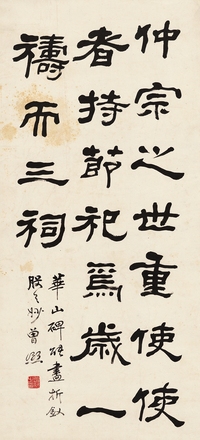 仲宗之世重使使
者持節祀焉歲一
禱而三祠
華山碑經畫折釵
股之妙曾熙